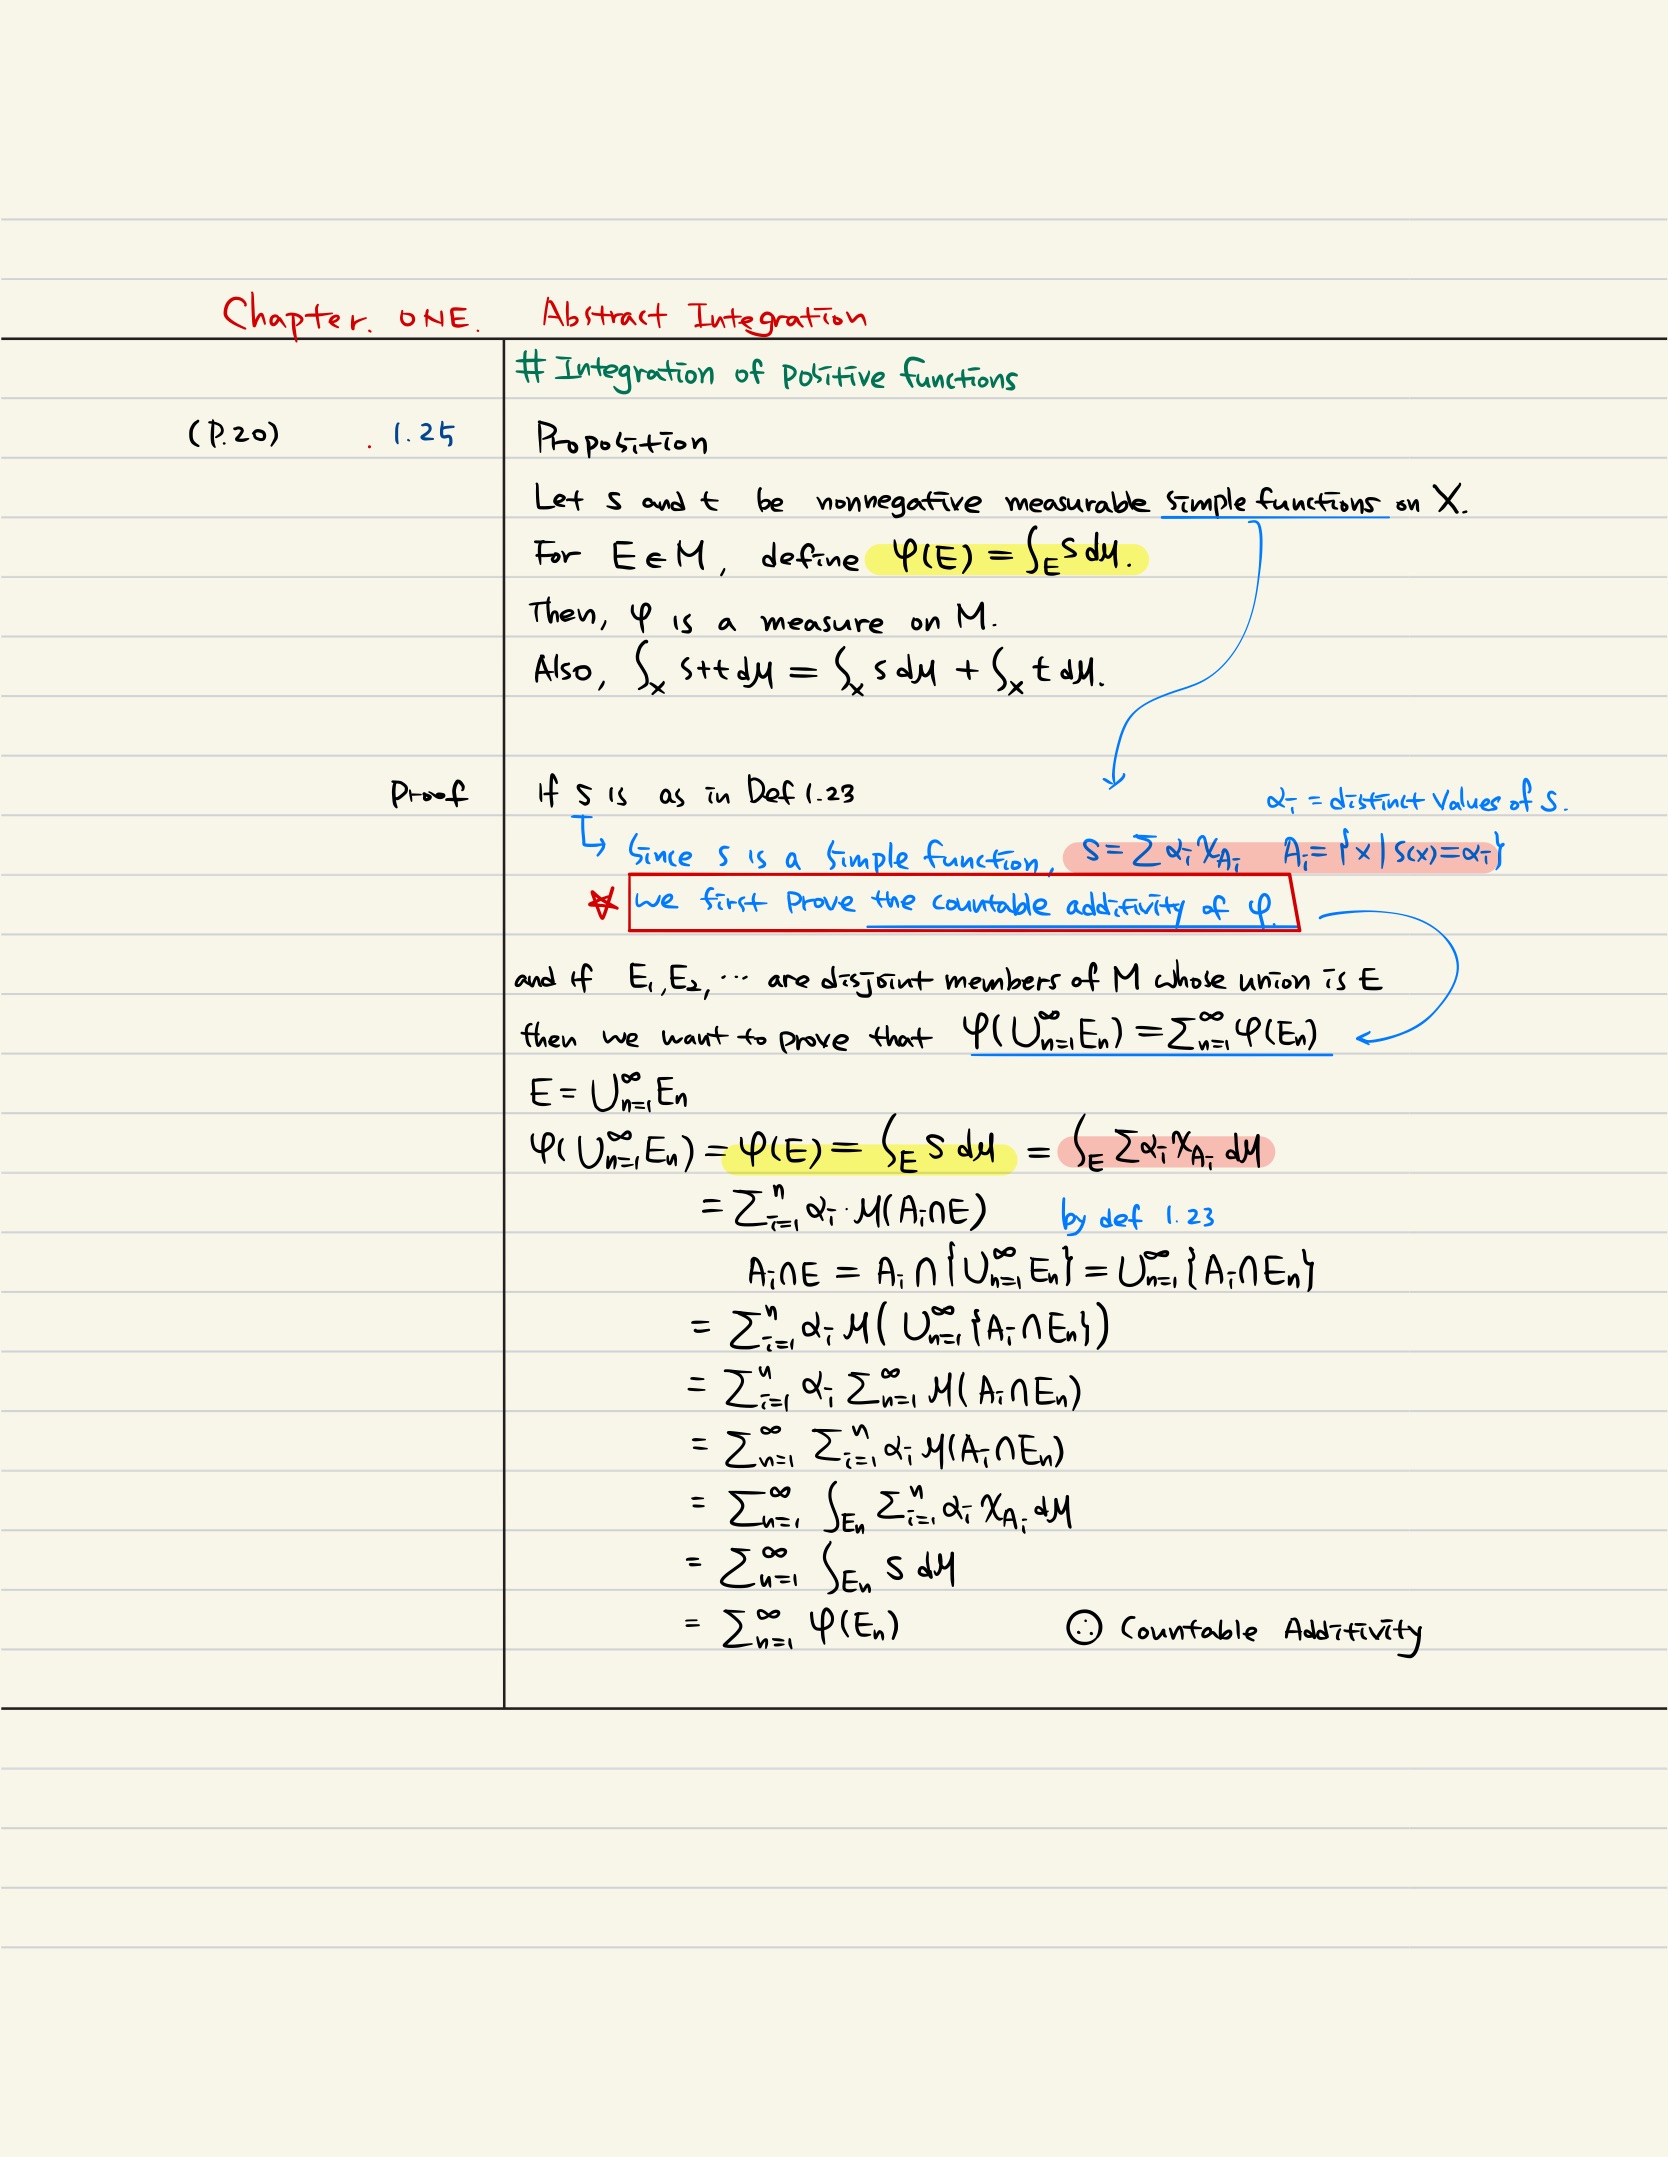 Chapter. ONE. Abstract Integration
# Integration of positive functions
(P.20) . 1.25 Proposition
Let s and t be nonnegative measurable simple functions on X.
For E ∈ M, define φ(E) = ∫_E s dμ.
Then, φ is a measure on M.
Also, ∫_X s+t dμ = ∫_X s dμ + ∫_X t dμ.
Proof If s is as in Def 1.23
αᵢ = distinct values of s.
↳ Since s is a simple function, s = Σ αᵢ χ_{Aᵢ} Aᵢ = {x | s(x) = αᵢ}
☆ we first prove the countable additivity of φ.
and if E₁, E₂, ⋯ are disjoint members of M whose union is E
then we want to prove that φ(⋃_{n=1}^∞ Eₙ) = Σ_{n=1}^∞ φ(Eₙ)
E = ⋃_{n=1}^∞ Eₙ
φ(⋃_{n=1}^∞ Eₙ) = φ(E) = ∫_E s dμ = ∫_E Σ αᵢ χ_{Aᵢ} dμ
= Σ_{i=1}^n αᵢ · μ(Aᵢ∩E) by def 1.23
Aᵢ∩E = Aᵢ ∩ {⋃_{n=1}^∞ Eₙ} = ⋃_{n=1}^∞ {Aᵢ∩Eₙ}
= Σ_{i=1}^n αᵢ μ(⋃_{n=1}^∞ {Aᵢ∩Eₙ})
= Σ_{i=1}^n αᵢ Σ_{n=1}^∞ μ(Aᵢ∩Eₙ)
= Σ_{n=1}^∞ Σ_{i=1}^n αᵢ μ(Aᵢ∩Eₙ)
= Σ_{n=1}^∞ ∫_{Eₙ} Σ_{i=1}^n αᵢ χ_{Aᵢ} dμ
= Σ_{n=1}^∞ ∫_{Eₙ} s dμ
= Σ_{n=1}^∞ φ(Eₙ) ∴ Countable Additivity